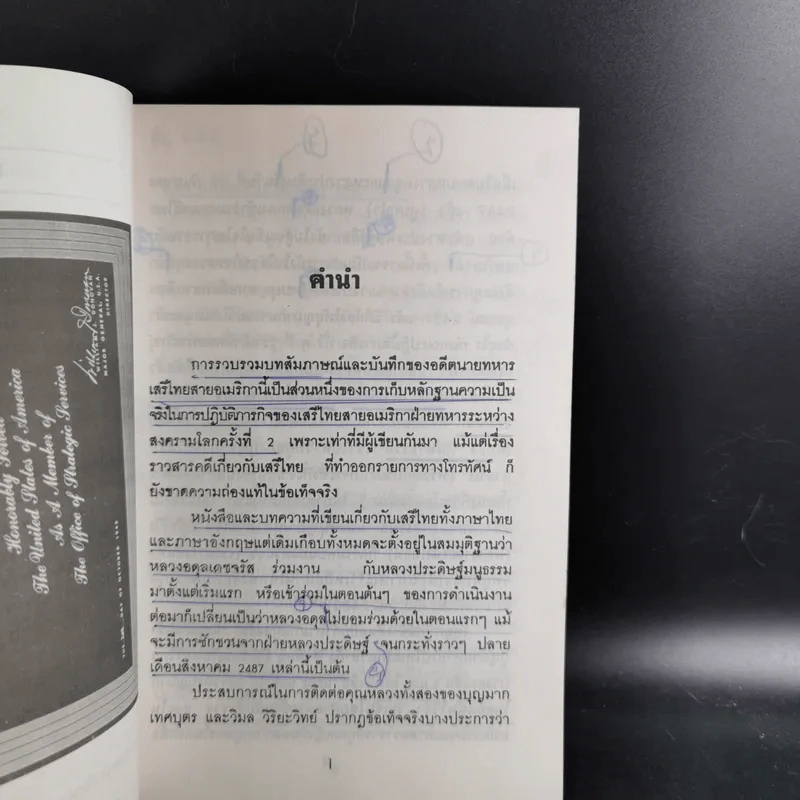 Honorably Served
The United States of America
As A Member of
The Office of Strategic Services
WILLIAM J. DONOVAN
MAJOR GENERAL, U.S.A.
DIRECTOR
คำนำ
การรวบรวมบทสัมภาษณ์และบันทึกของอดีตนายทหาร
เสรีไทยสายอเมริกานี้เป็นส่วนหนึ่งของการเก็บหลักฐานความเป็น
จริงในการปฏิบัติภารกิจของเสรีไทยสายอเมริกาฝ่ายทหารระหว่าง
สงครามโลกครั้งที่ 2 เพราะเท่าที่มีผู้เขียนกันมา แม้แต่เรื่อง
ราวสารคดีเกี่ยวกับเสรีไทย ที่ทำออกรายการทางโทรทัศน์ ก็
ยังขาดความถ่องแท้ในข้อเท็จจริง
หนังสือและบทความที่เขียนเกี่ยวกับเสรีไทยทั้งภาษาไทย
และภาษาอังกฤษแต่เดิมเกือบทั้งหมดจะตั้งอยู่ในสมมุติฐานว่า
หลวงอดุลเดชจรัส ร่วมงาน กับหลวงประดิษฐ์มนูธรรม
มาตั้งแต่เริ่มแรก หรือเข้าร่วมในตอนต้นๆ ของการดำเนินงาน
ต่อมาก็เปลี่ยนเป็นว่าหลวงอดุลไม่ยอมร่วมด้วยในตอนแรกๆ แม้
จะมีการชักชวนจากฝ่ายหลวงประดิษฐ์ จนกระทั่งราวๆ ปลาย
เดือนสิงหาคม 2487 เหล่านี้เป็นต้น
ประสบการณ์ในการติดต่อคุณหลวงทั้งสองของบุญมาก
เทศบุตร และวิมล วิริยะวิทย์ ปรากฏข้อเท็จจริงบางประการว่า
1